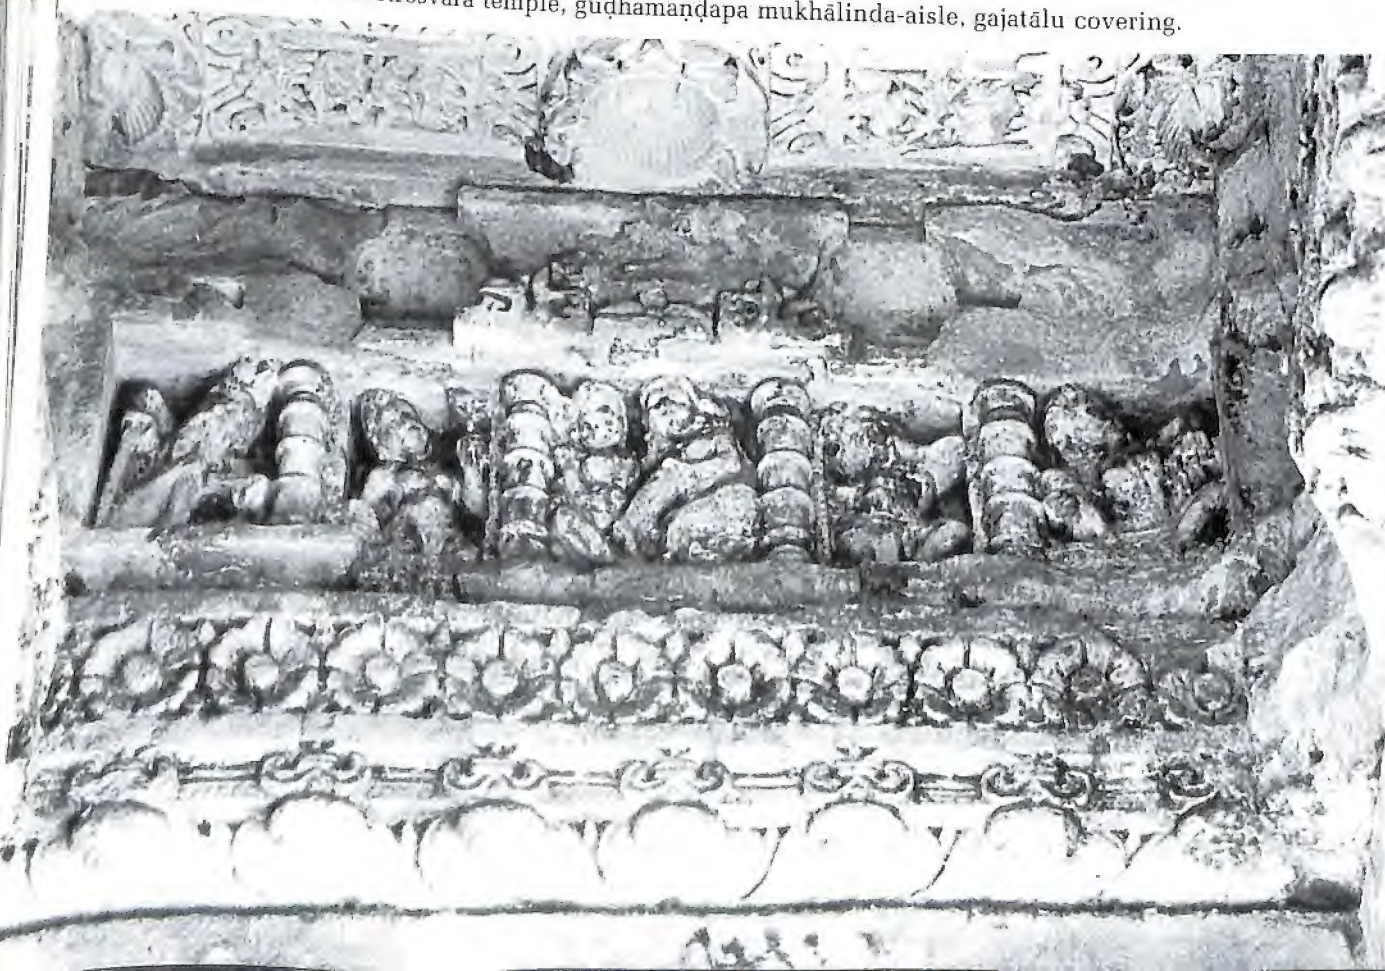 temple, gūḍhamaṇḍapa mukhālinda-aisle, gajatālu covering.